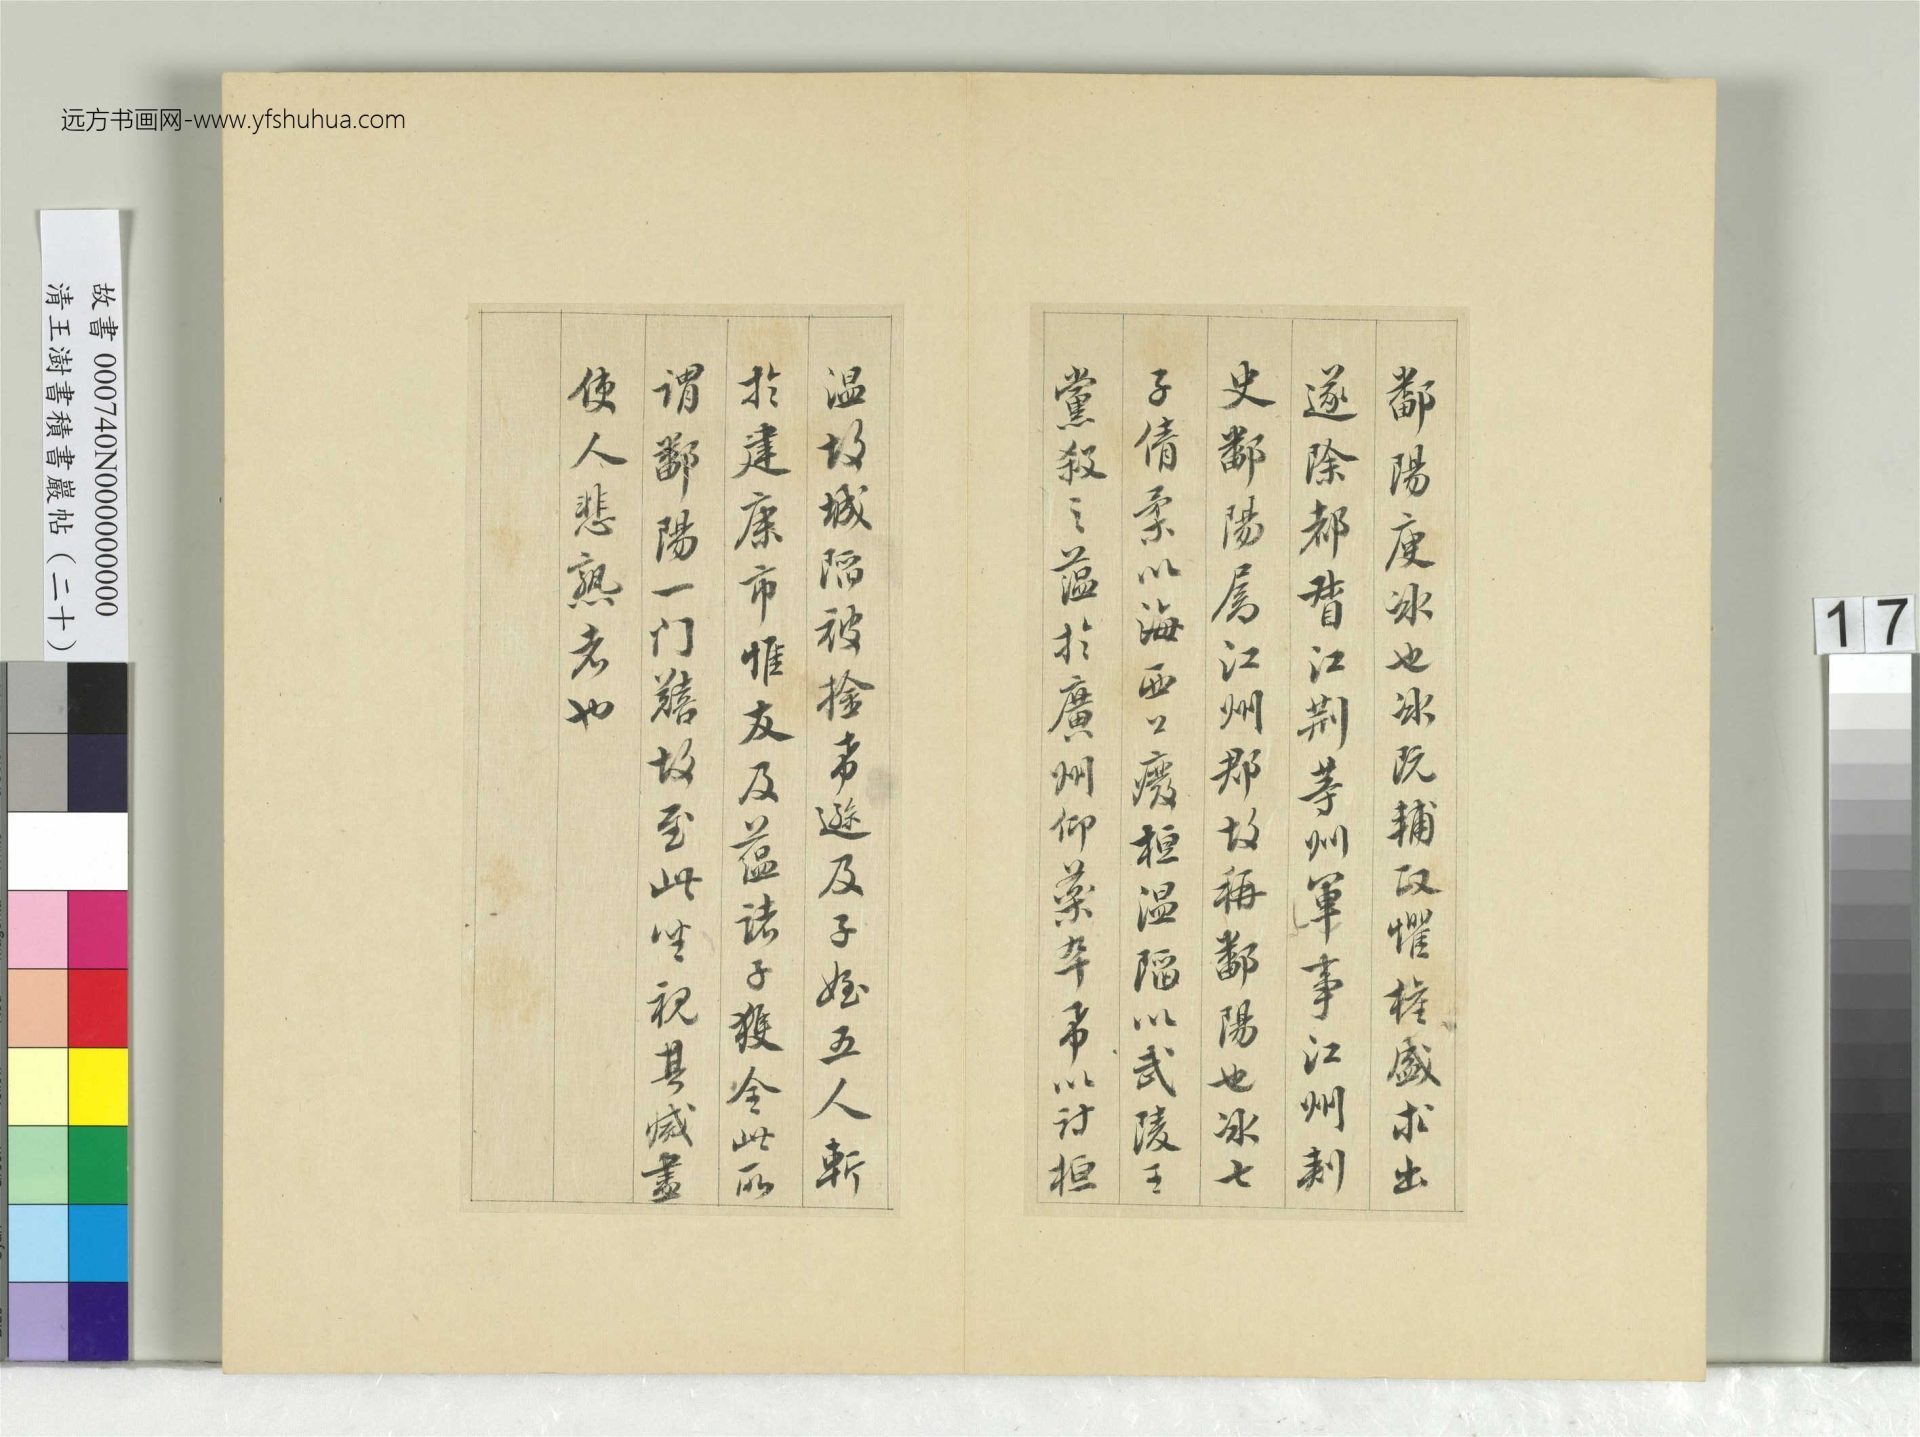 远方书画网-www.yfshuhua.com
故書 000740N000000000
清王澍書積書巖帖（二十）
17
鄱陽庾冰也冰既輔政懼權盛求出
遂除都督江荊等州軍事江州刺
史鄱陽屬江州郡故稱鄱陽也冰七
子倩柔以海西公廢桓温陷以武陵王
黨殺之蕴於廣州仰藥卒希以討桓
温故城陷被擒希邈及子姪五人斬
於建康市惟友及蕴諸子獲全此所
謂鄱陽一门艱故至此坐視其滅盡
使人悲熟者也